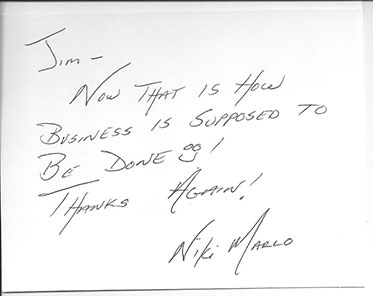 Jim -
Now That is How
Business is Supposed to
Be Done!
Thanks Again!
Niki Marlo